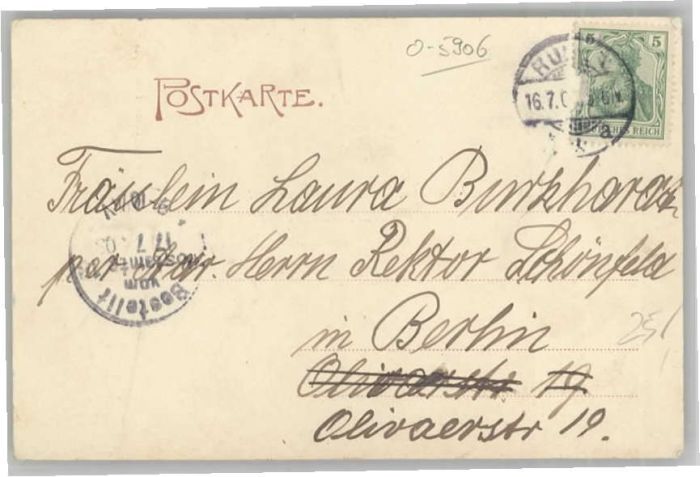 O-5906
POSTKARTE.
5
16.7.0
a
DEUTSCHES REICH
Fräulein Laura Burkhardt
per Adr. Herrn Rektor Schönfeld
in Berlin
Olivaerstr 19
Olivaerstr 19.
17 7
Bestellt
vom
Postamte
25/